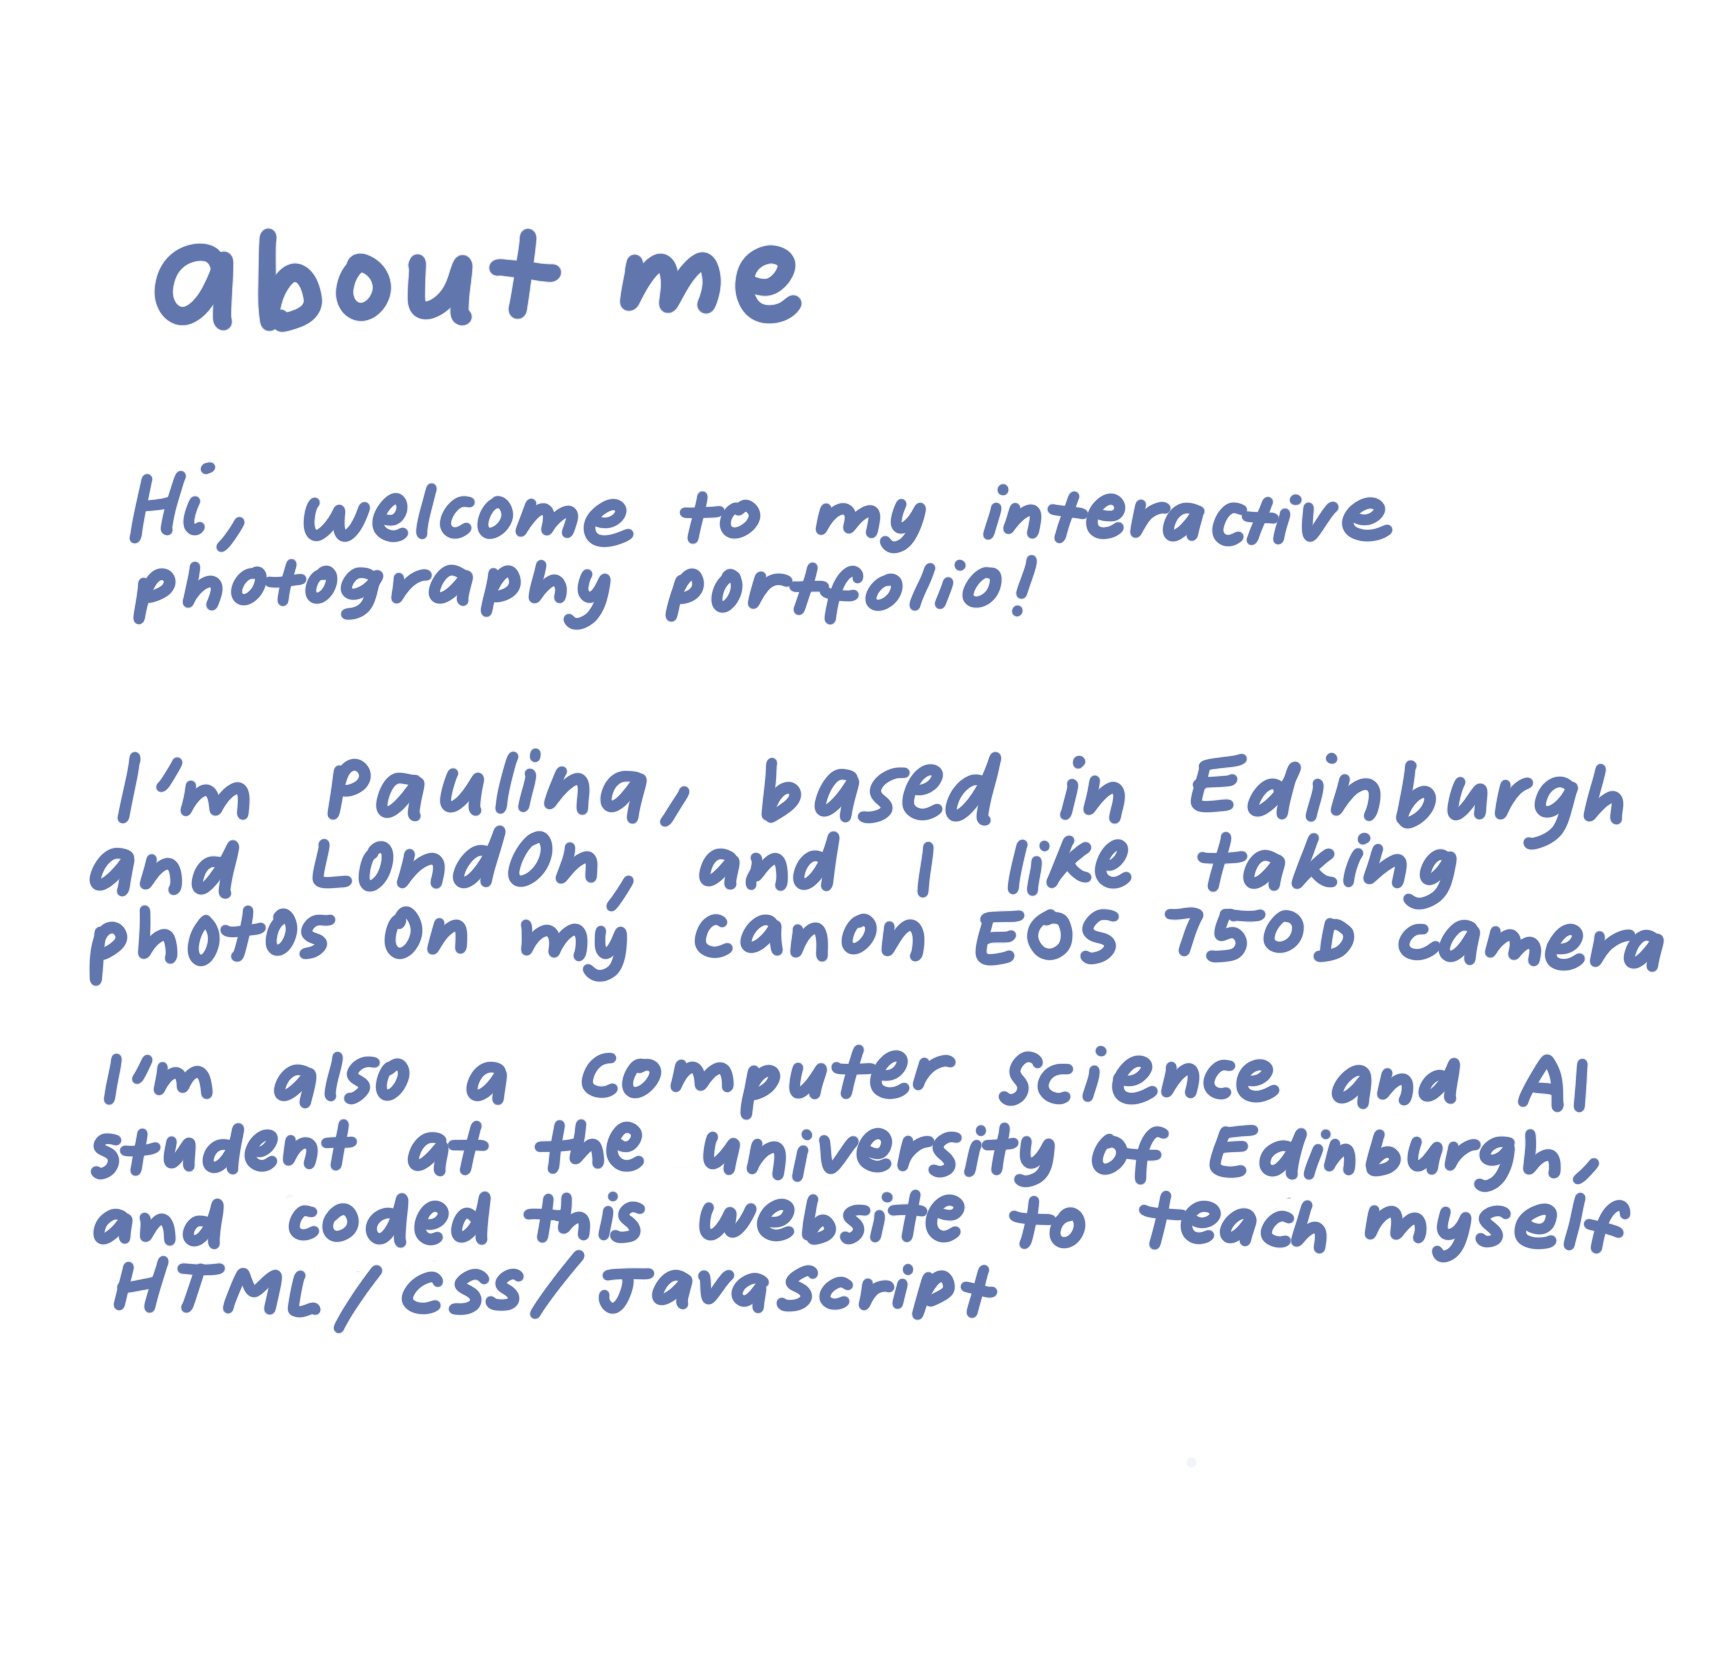 about me
Hi, welcome to my interactive
photography portfolio!
I'm Paulina, based in Edinburgh
and London, and I like taking
photos on my canon EOS 750D camera
I'm also a computer science and AI
student at the university of Edinburgh,
and coded this website to teach myself
HTML/CSS/JavaScript